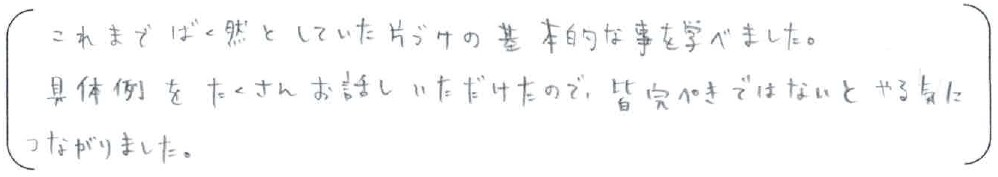 これまでばく然としていた片づけの基本的な事を学べました。
具体例をたくさんお話しいただけたので、皆完ぺきではないとやる気に
つながりました。